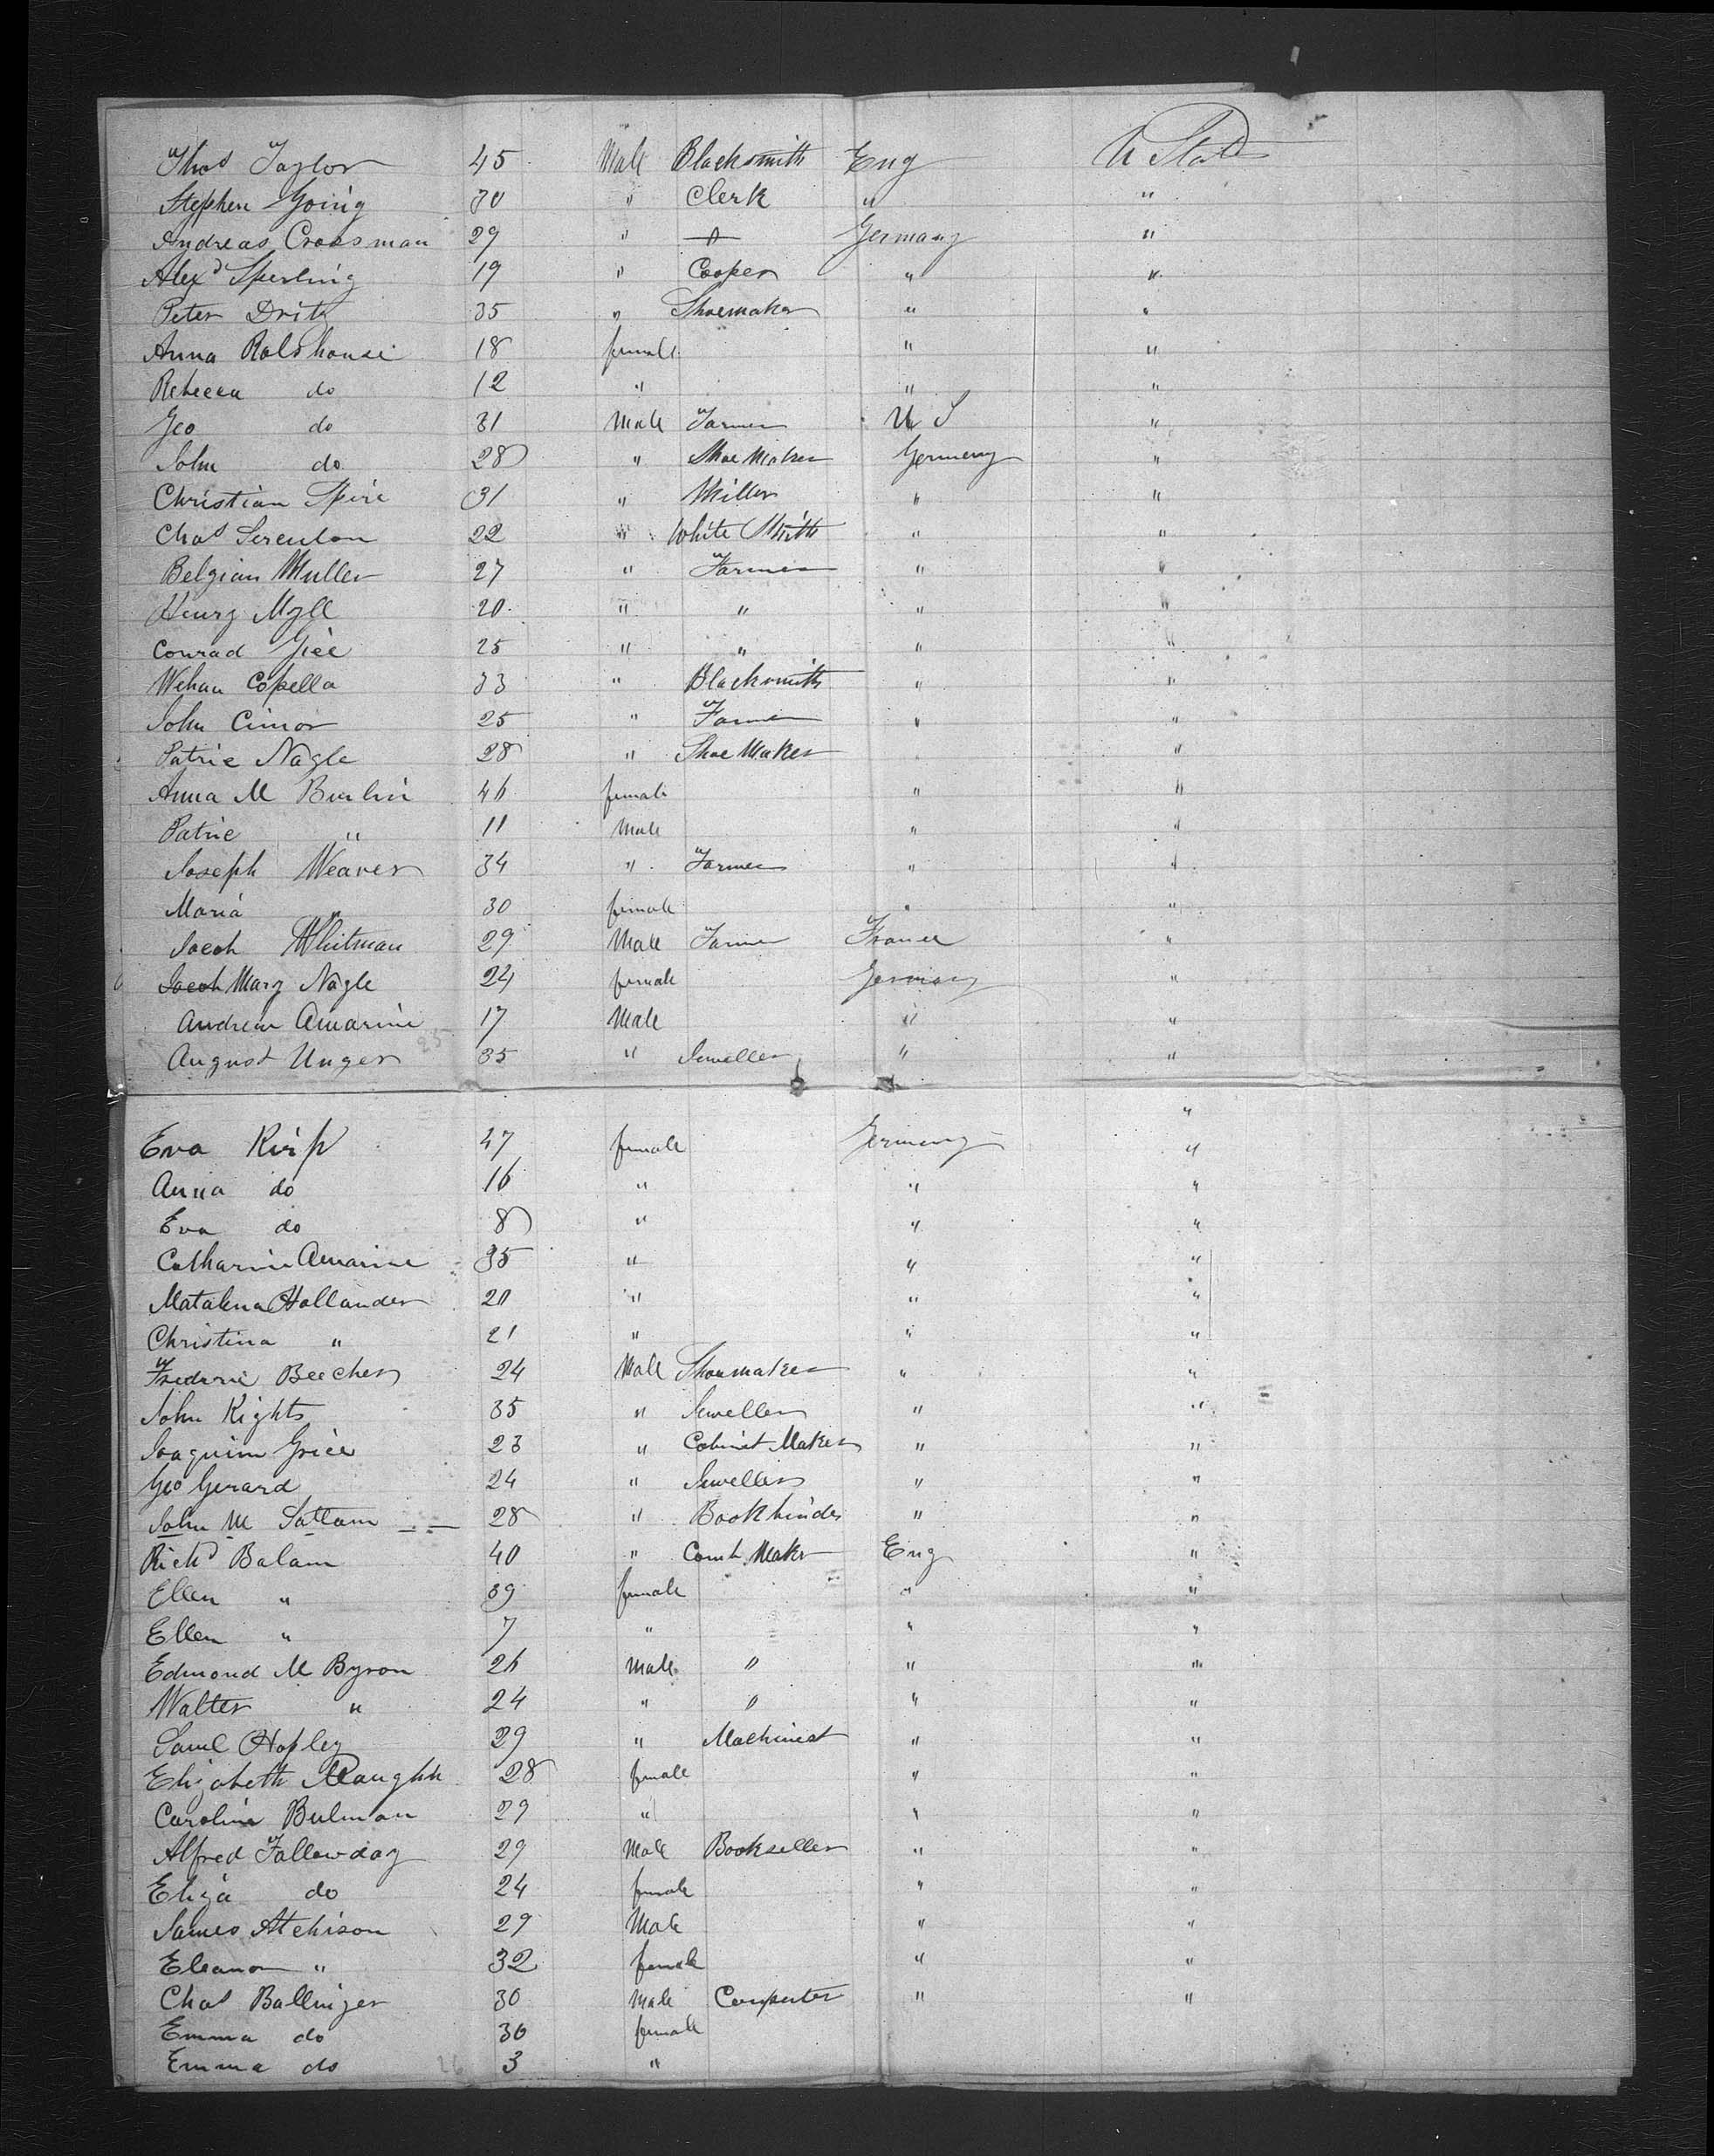 Thos Taylor 45 Male Blacksmith Eng U States
Stephen Going 30 " Clerk " "
Andreas Crossman 29 " " Germany "
Alexd Sperling 19 " Cooper " "
Peter Dritz 35 " Shoemaker " "
Anna Ralshouse 18 female " "
Rebecca do 12 " " "
Geo do 31 Male Farmer U S "
John do 28 " Shoe Maker Germany "
Christian Spire 31 " Miller " "
Chas 22 " White Smith " "
Belgian Muller 27 " Farmer " "
Henry Myll 20 " " " "
Conrad 25 " " " "
Wehan Copella 33 " Blacksmith " "
John Cimor 25 " Farmer " "
Patric Nagle 28 " Shoe Maker " "
Anna M 46 female " "
Patric " 11 Male " "
Joseph Weaver 34 " Farmer " "
Maria " 30 female " "
Jacob Whitman 29 Male Farmer France "
Jacob Mary Nagle 24 female Germany "
Andrew Amarine 17 Male " "
August Unger 35 " Jeweller " "
"
Eva Kirp 47 female Germany "
Anna do 16 " " "
Eva do 8 " " "
Catharine Amarine 35 " " "
Matalena Hollander 20 " " "
Christina " 21 " " "
Frederic Beecher 24 Male Shoemaker " "
John Kights 35 " Jeweller " "
Joaquim Grice 23 " Cabinet Maker " "
Geo Gerard 24 " Jeweller " "
John M Sattam 28 " Bookbinder " "
Richd Balam 40 " Comb Maker Eng "
Ellen " 39 female " "
Ellen " 7 " " "
Edmond M Byron 26 Male " " "
Walter " 24 " " " "
Saml Hopley 29 " Machinest " "
Elizabeth 28 female " "
Caroline Bulman 29 " " "
Alfred Fallowday 29 Male Bookseller " "
Eliza do 24 female " "
James Atchison 29 Male " "
Eleanor " 32 female " "
Chas Ballinger 30 Male Carpenter " "
Emma do 30 female
Emma do 26 3 "